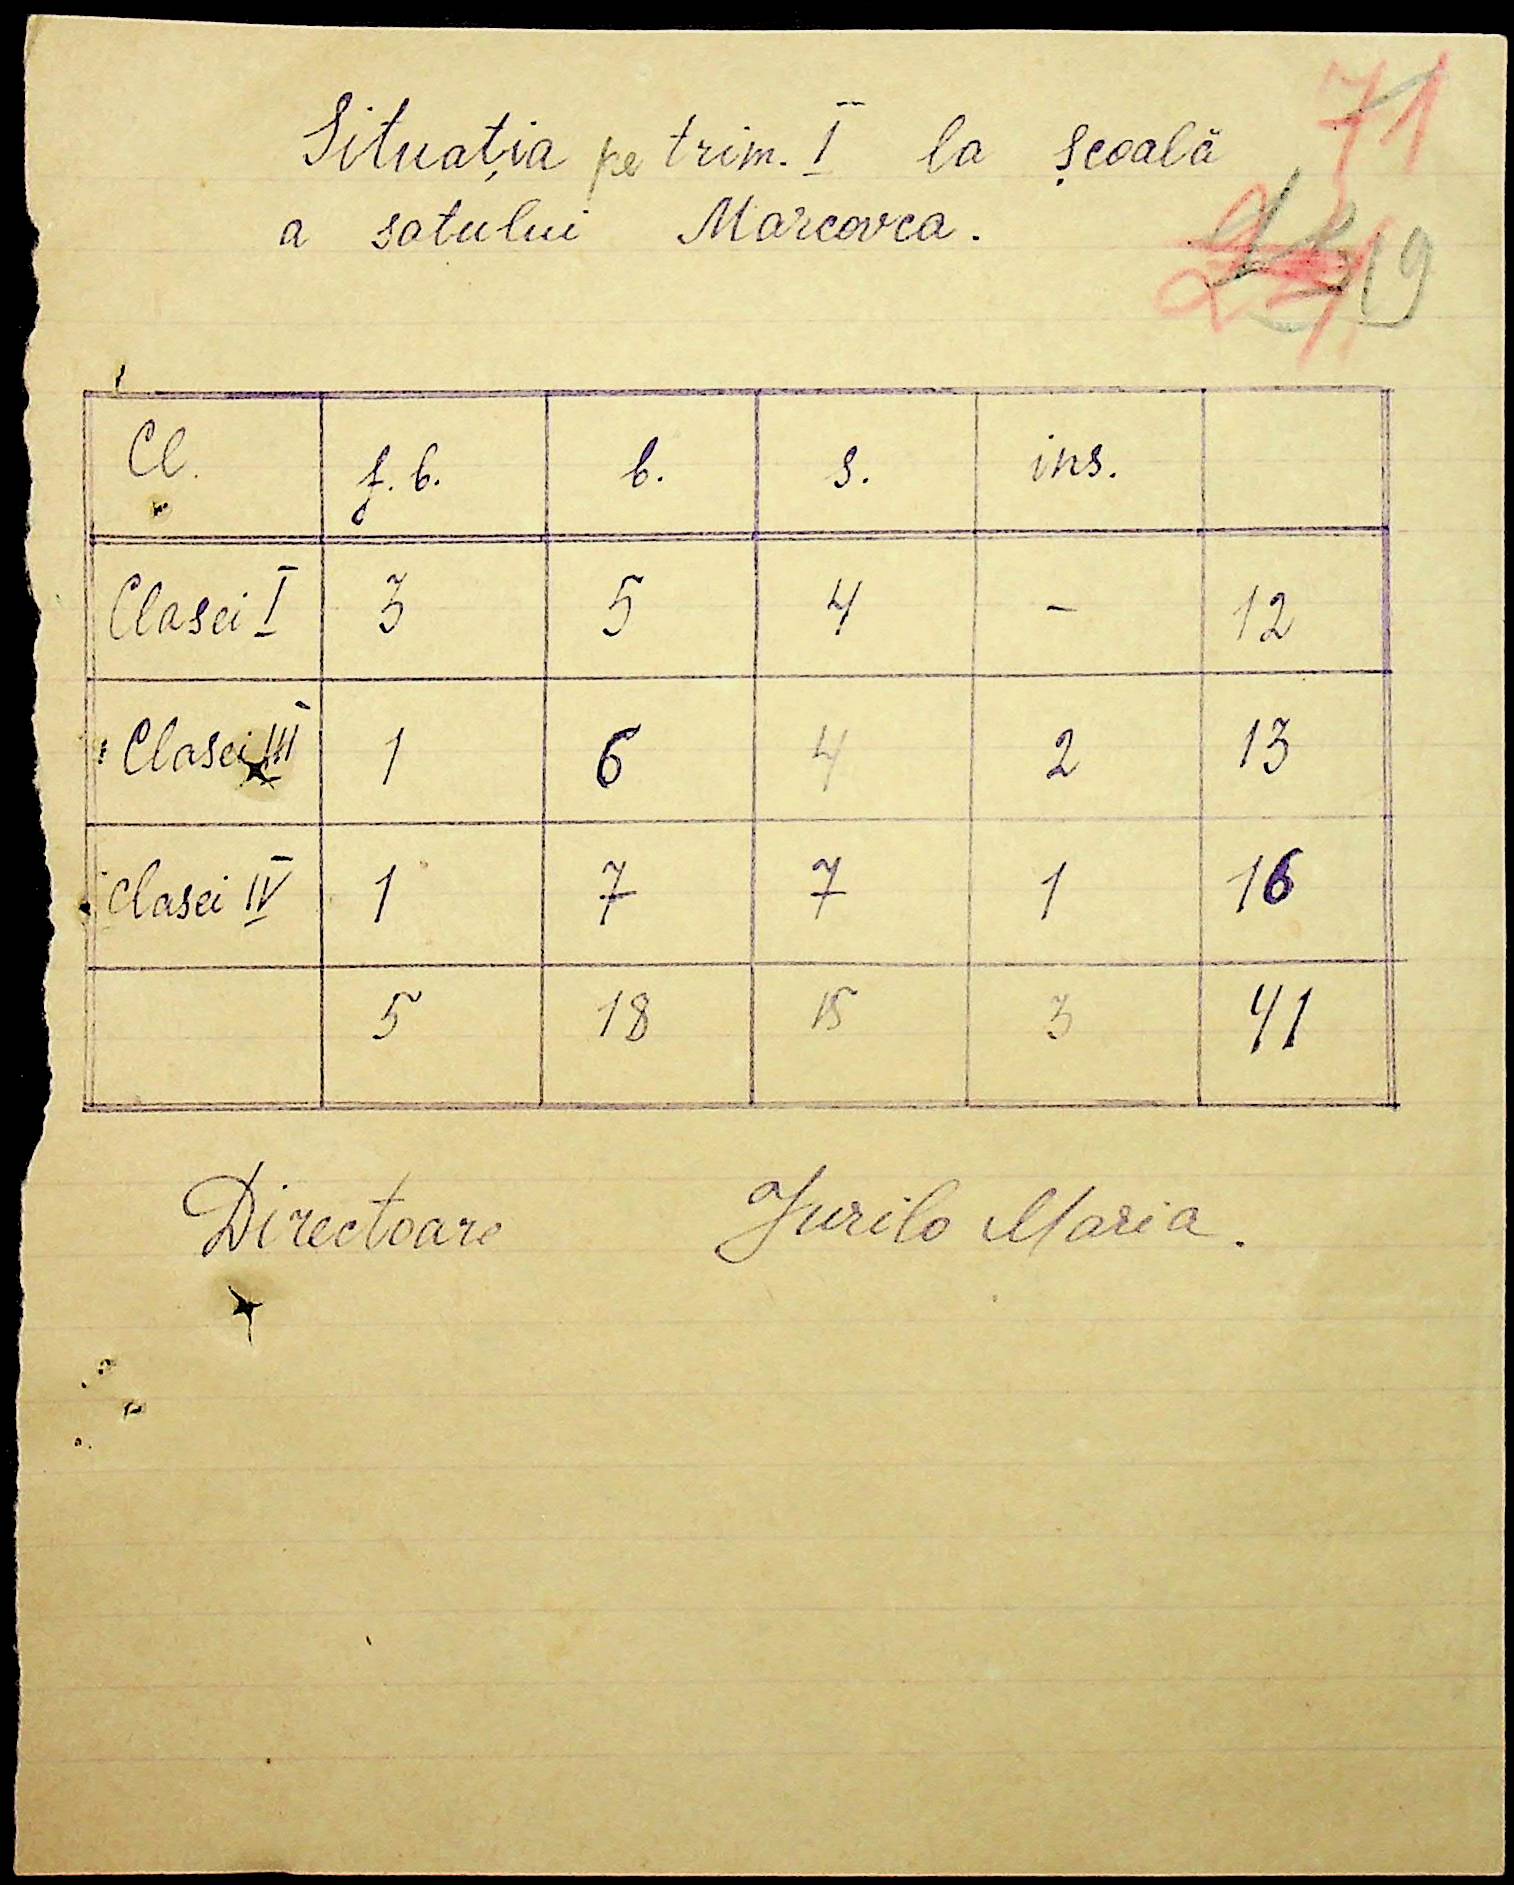 71
Situația pe trim. I la școală
a satului Marcovca.
Cl. f. b. b. s. ins.
Clasei I 3 5 4 - 12
Clasei III 1 6 4 2 13
Clasei IV 1 7 7 1 16
5 18 15 3 41
Directoare Jurilo Maria.